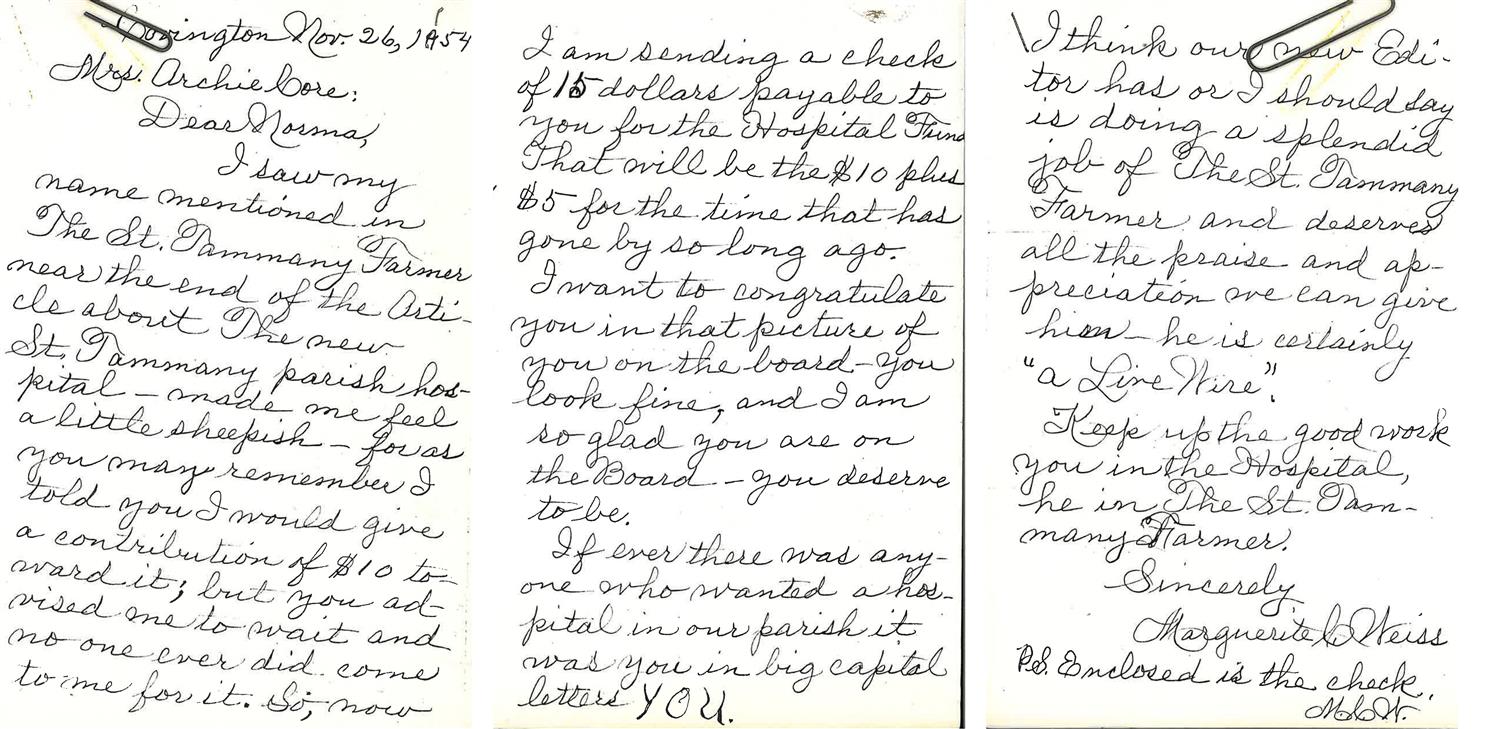 Covington Nov. 26, 1954
Mrs. Archie Core:
Dear Norma,
I saw my
name mentioned in
The St. Tammany Farmer
near the end of the Arti-
cle about The new
St. Tammany parish hos-
pital - made me feel
a little sheepish - for as
you may remember I
told you I would give
a contribution of $10 to-
ward it; but you ad-
vised me to wait and
no one ever did come
to me for it. So, now
I am sending a check
of 15 dollars payable to
you for the Hospital Fund
That will be the $10 plus
$5 for the time that has
gone by so long ago.
I want to congratulate
you in that picture of
you on the board - you
look fine, and I am
so glad you are on
the Board - you deserve
to be.
If ever there was any-
one who wanted a hos-
pital in our parish it
was you in big capital
letters YOU.
I think our new Edi-
tor has or I should say
is doing a splendid
job of The St. Tammany
Farmer and deserves
all the praise and ap-
preciation we can give
him - he is certainly
"a Live Wire".
Keep up the good work
you in the Hospital,
he in The St. Tam-
many Farmer.
Sincerely
Marguerite C Weiss
P.S. Enclosed is the check.
M.C.W.